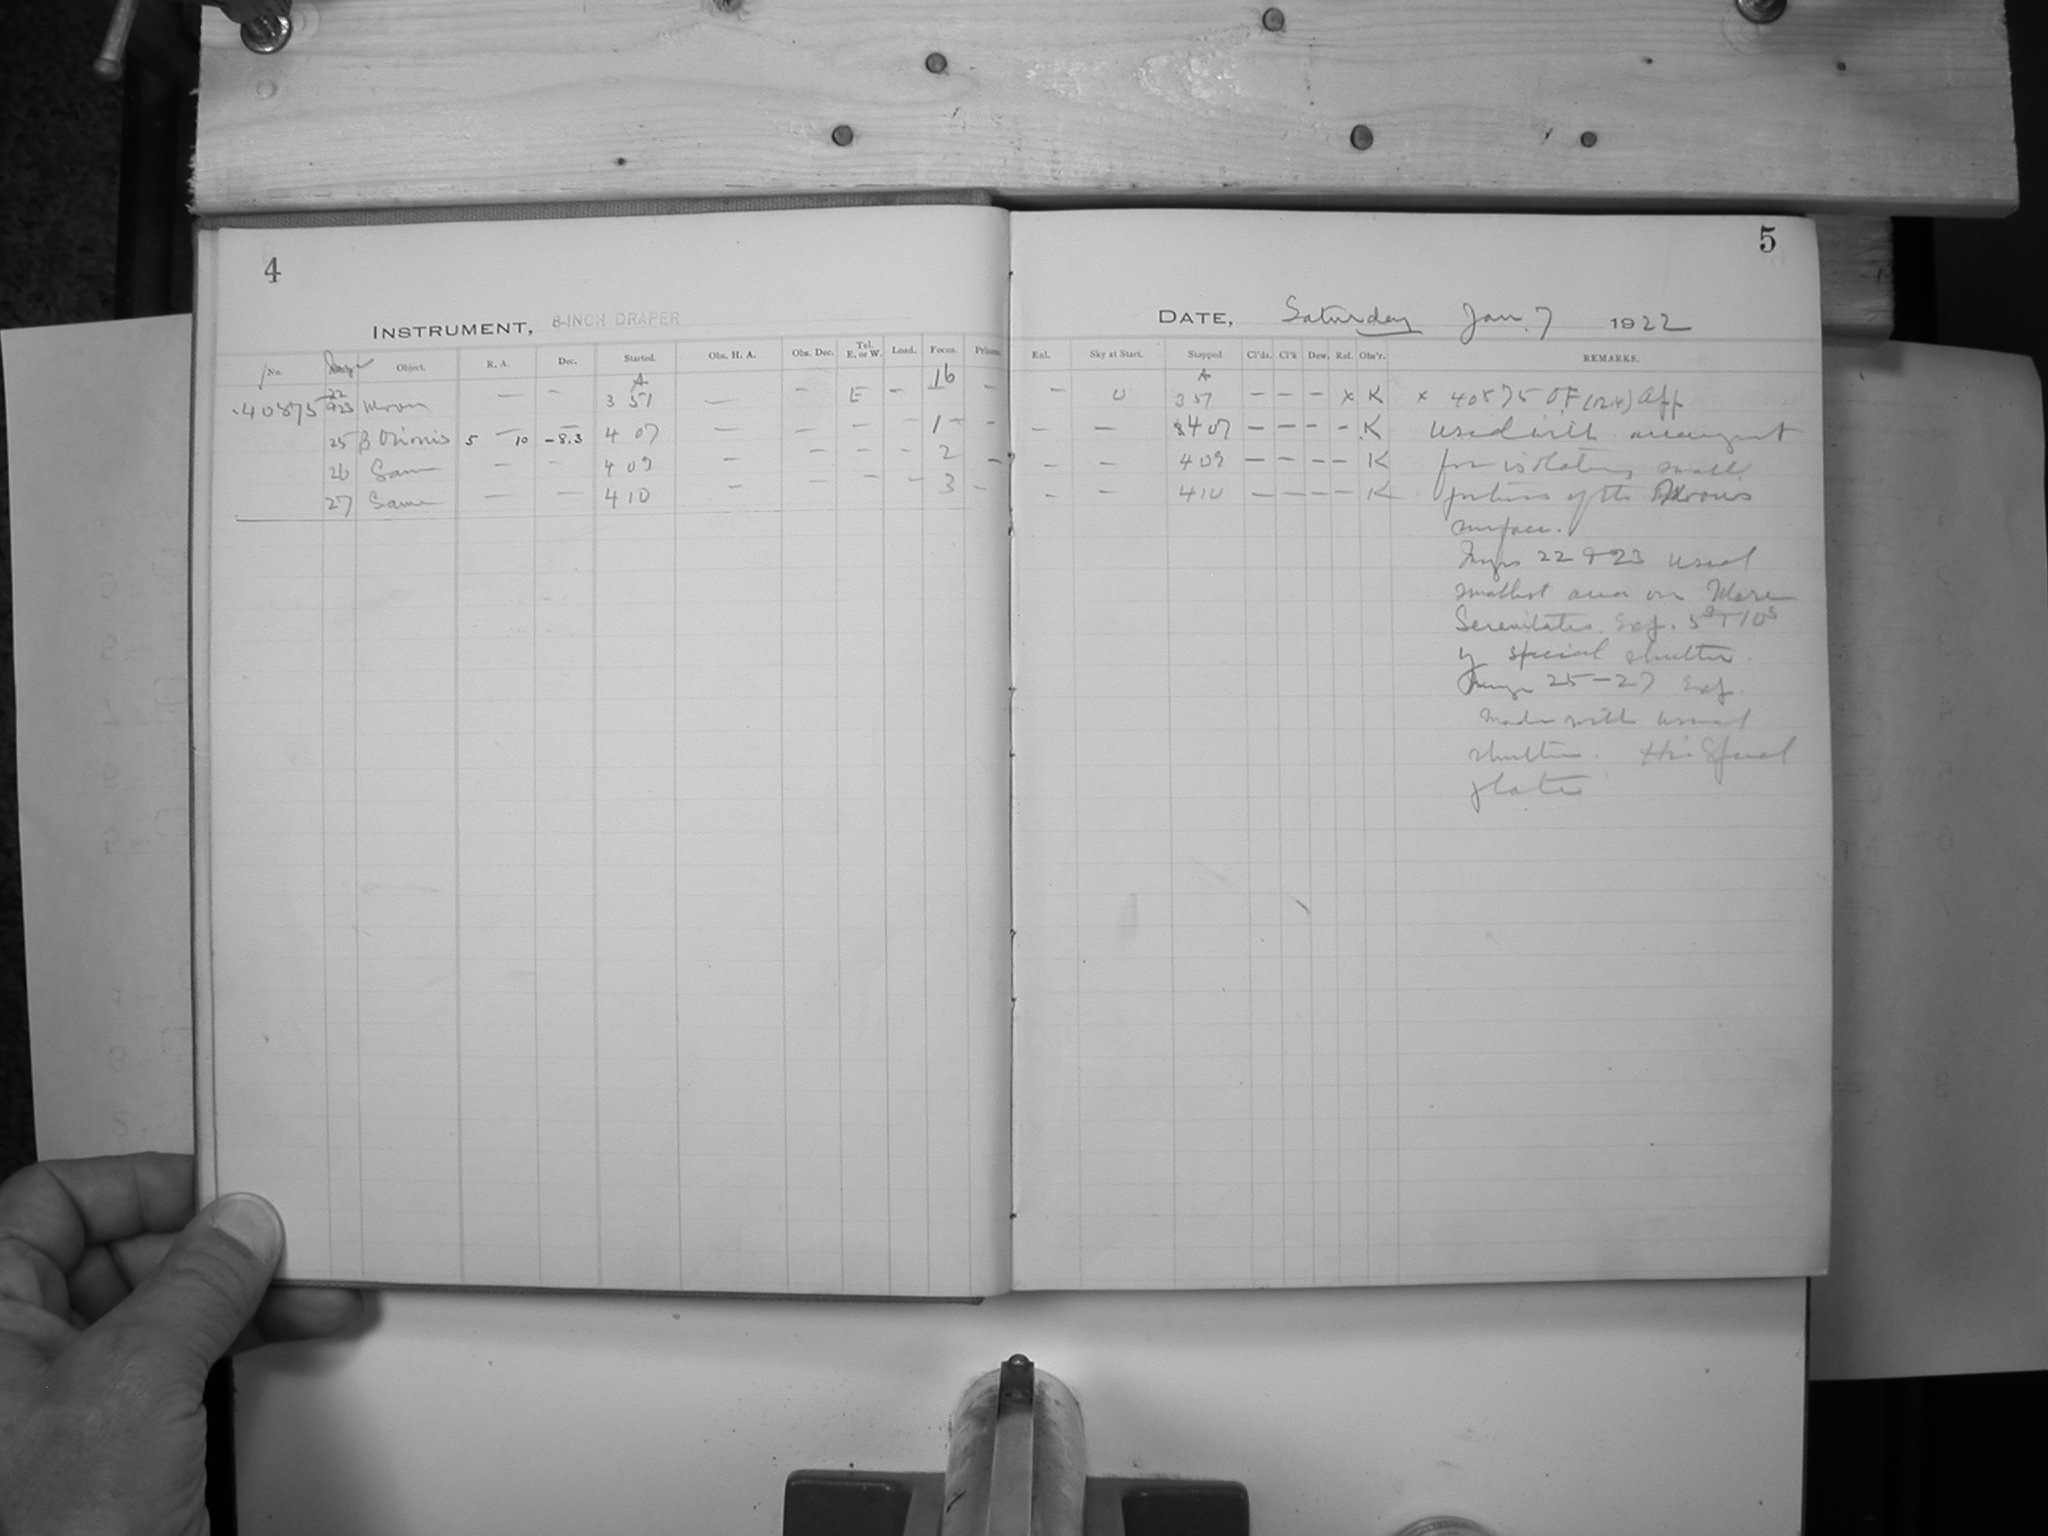 4
INSTRUMENT, 8-INCH DRAPER
No. Object. R. A. Dec. Started. Obs. H. A. Obs. Dec. Tel. E. or W. Load. Focus. Prisms.
40875 22 &23 Moon — — A 3 51 — — E — 16 —
25 β Orionis 5 — 10 -8.3 4 07 — — — — 1 —
26 Same — — 4 09 — — — — 2 —
27 Same — — 4 10 — — — — 3 —
5
DATE, Saturday Jan. 7 1922
Eal. Sky at Start. Stopped. Cl'ds. Cl'k Dew. Ref. Obs'r. REMARKS.
— 0 A 3 51 — — — x K x 40875 OF (12.4) Aff
— — 4 07 — — — — K Used with
— — 4 09 — — — — K for isolating small
— — 4 10 — — — — K portions of the Moons
surface.
22 & 23 used
smallest area on Mare
Serenitatis. Exp. 5s + 10s
special shutter.
25-27 Exp.
made with usual
shutter. Special
plate